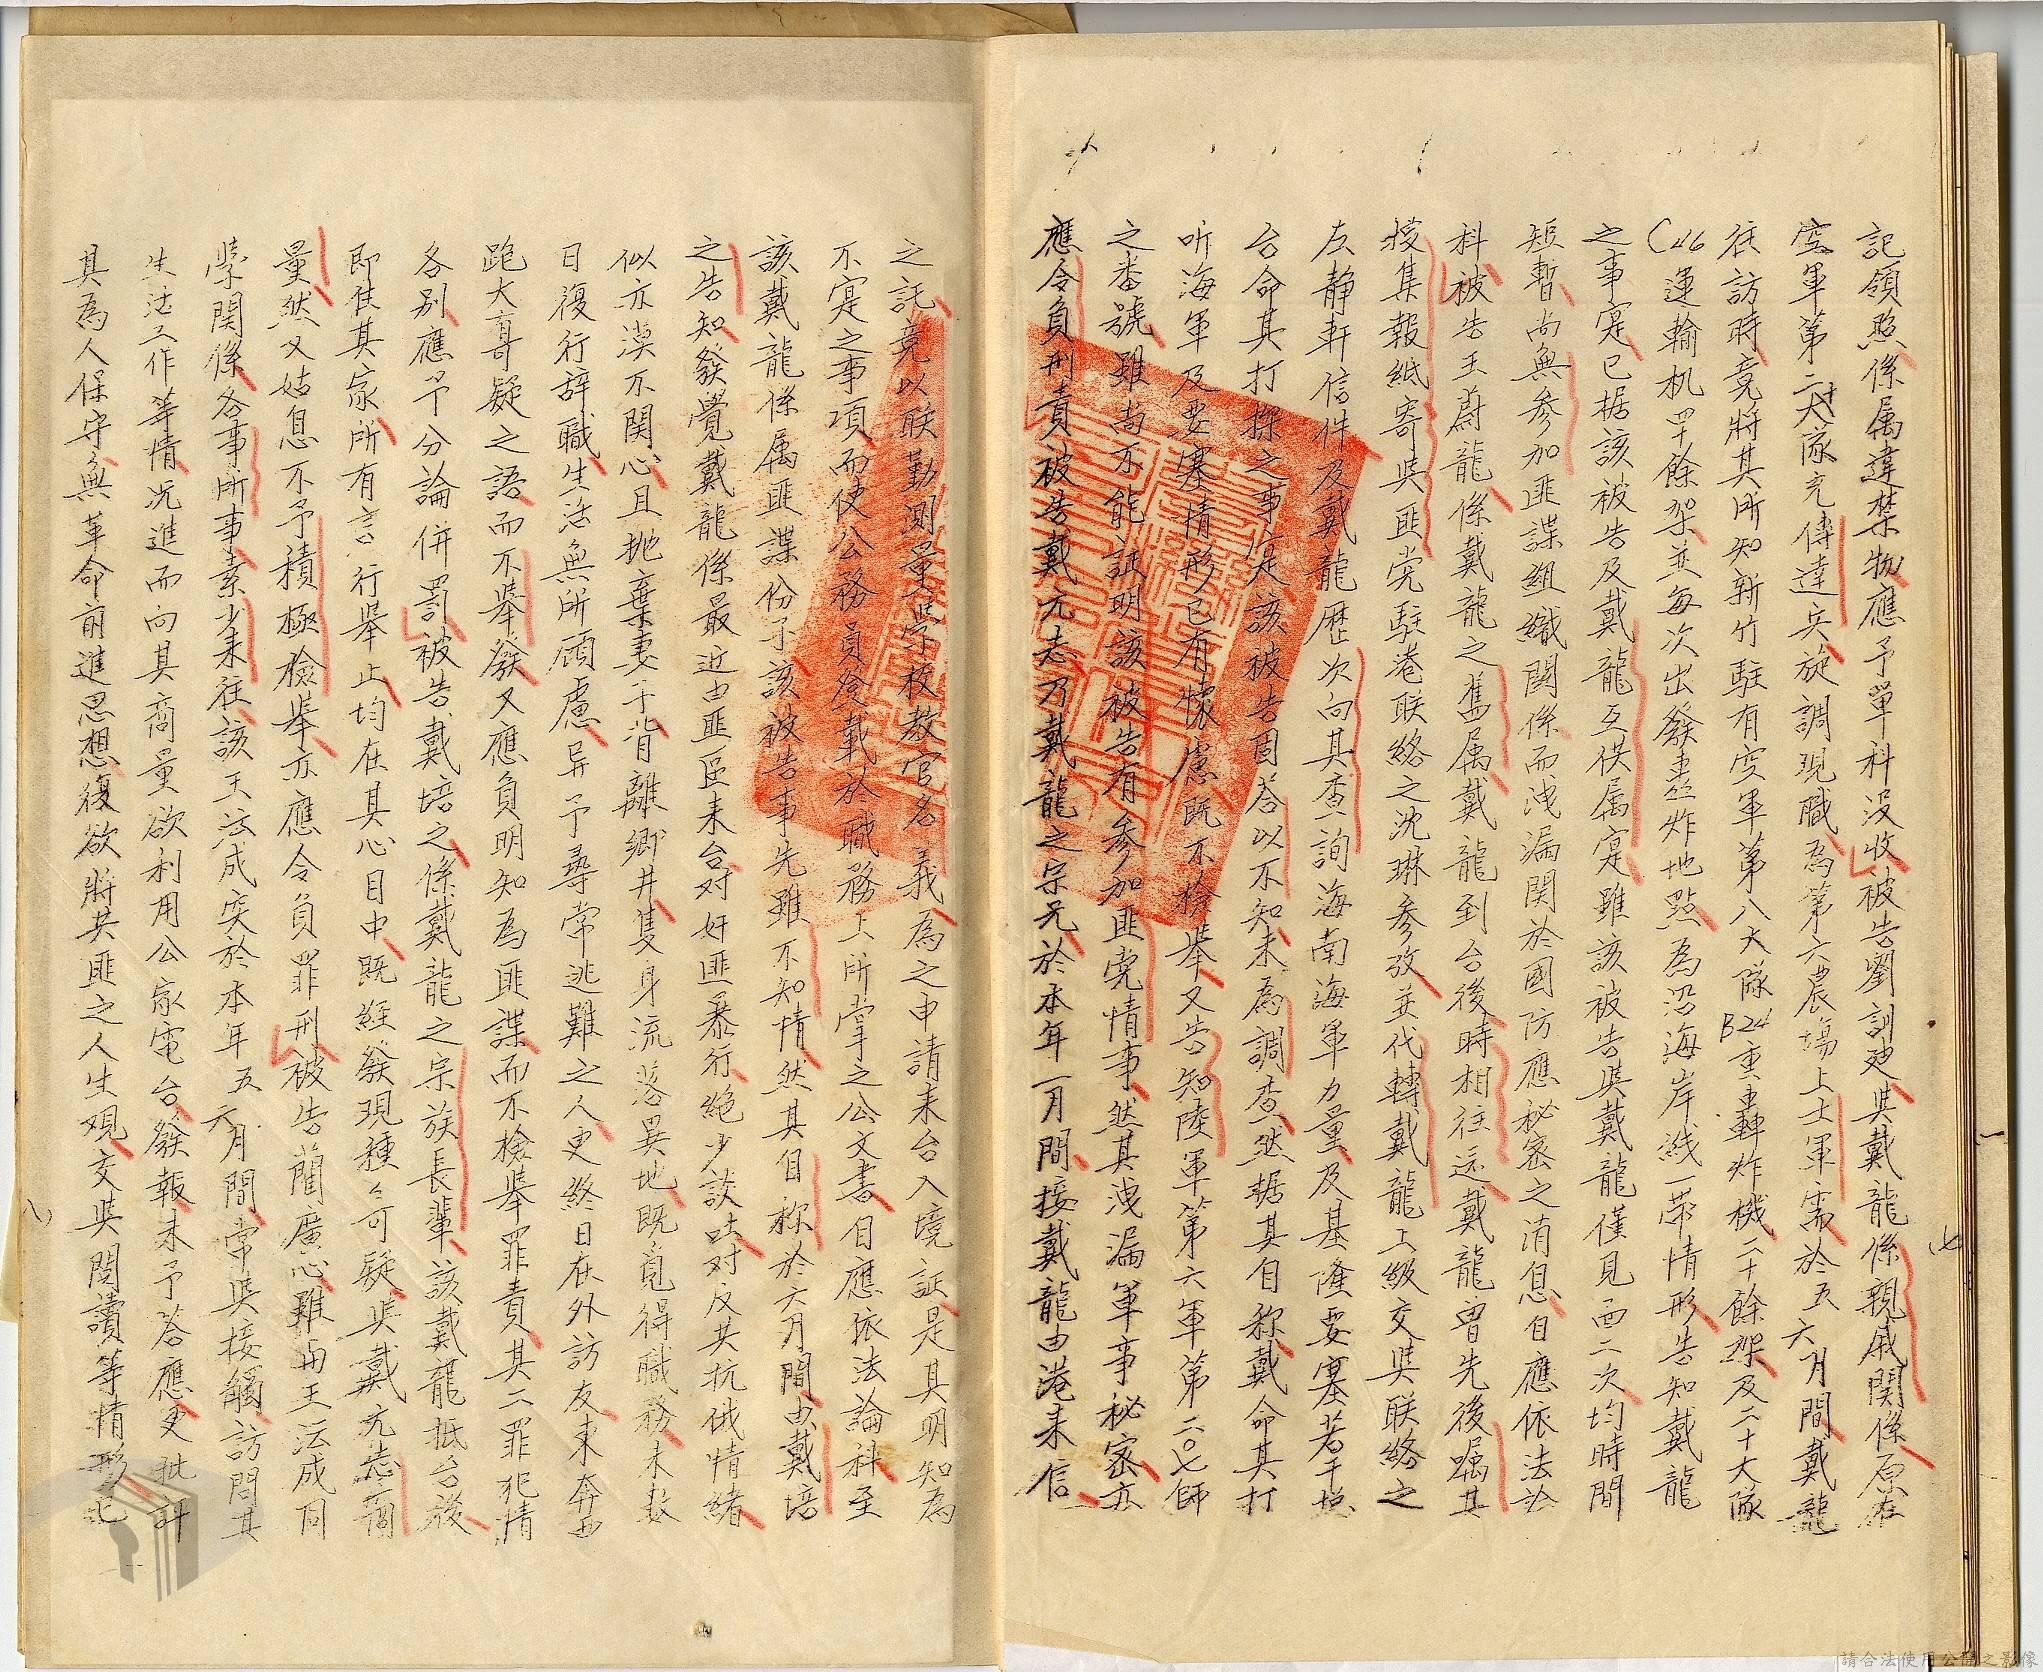 記領照係属違禁物應予單科没收被告劉訓廸與戴龍係親戚関係原在
空軍第二十大隊充傳達兵旋調現職為第六農場上士軍需於五六月間戴龍
往訪時竟將其所知新竹駐有空軍第八大隊B24重轟炸機二十餘架及二十大隊
C46運輸机四十餘架並每次出發轟炸地點為沿海岸綫一帶情形告知戴龍
之事寔已据該被告及戴龍互供属寔雖該被告與戴龍僅見面二次均時間
短暫尚無參加匪諜組織関係而洩漏関於國防應秘密之消息自應依法論
科被告王蔚龍係戴龍之舊属戴龍到台後時相往還戴龍曾先後囑其
搜集報紙寄與匪党駐港联絡之沈琳參攷並代轉戴龍上級交與联絡之
左静軒信件及戴龍歷次向其查詢海南海軍力量及基隆要塞若干
台命其打探之事寔該被告固答以不知未為調查然据其自称戴命其打
听海軍及要塞情形已有懷慮既不檢舉又告知陸軍第六軍第二〇七師
之番號雖尚不能証明該被告有參加匪党情事然其洩漏軍事秘密亦
應令負刑責被告戴元志乃戴龍之宗兄於本年一月間接戴龍由港来信
之託竟以联勤測量學校教官名義為之申請来台入境証是其明知為
不寔之事項而使公務員登載於職務上所掌之公文書自應依法論科至
該戴龍係属匪諜份子該被告事先雖不知情然其自称於六月間由戴培
之告知發覺戴龍係最近由匪區来台对奸匪暴行絶少談吐对反共抗俄情緒
似亦漠不関心且抛棄妻子背離鄉井隻身流落異地既覓得職務未数
日復行辞職生活無所顧慮异予尋常逃難之人更終日在外訪友東奔西
跑大哥疑之語而不舉發又應負明知為匪諜而不檢舉罪責其二罪犯情
各别應予分論併罰被告戴培之係戴龍之宗族長輩該戴龍抵台後
即住其家所有言行舉止均在其心目中既經發現種々可疑與戴元志商
量然又姑息不予積極檢舉亦應令負罪刑被告藺廣心雖與王法成同
學関係各事所事素少来往該王法成突於本年五六月間常與接觸訪問其
生活工作等情况進而向其商量欲利用公家電台發報未予答應更
其為人保守無革命前進思想復欲將共匪之人生观交與閱讀等情形